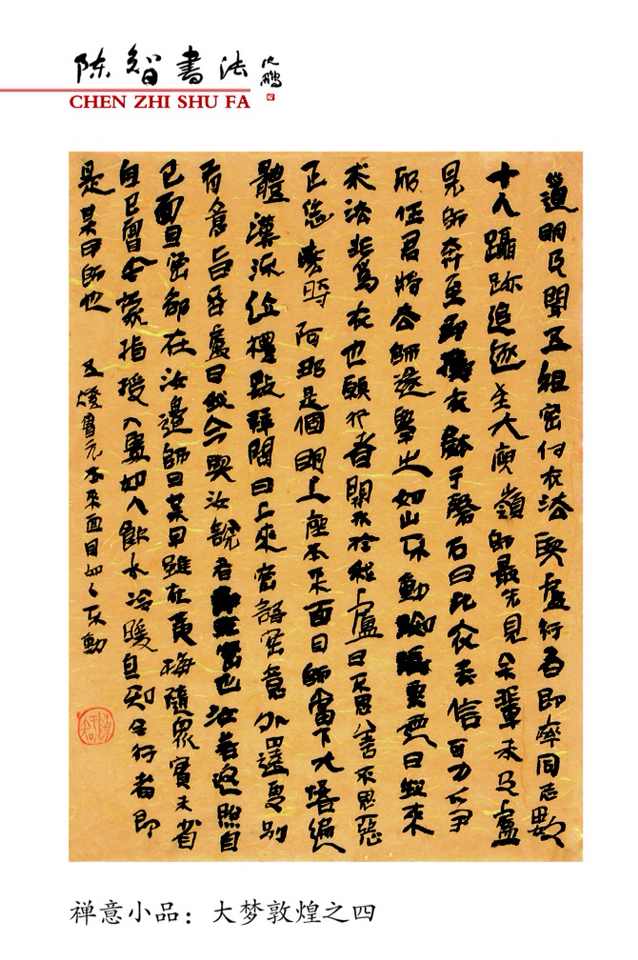 陈智书法
沈鹏
CHEN ZHI SHU FA
道明及聞五祖密付衣法與盧行者即率同志數
十人躡跡追逐至大庾嶺師最先見余輩未及盧
見師奔至即擲衣缽于磐石曰此衣表信可力爭
邪任君將去師遂舉之如山不動曰我來
求法非為衣也願行者開示於我盧曰不思善不思惡
正恁麼時阿那是個明上座本來面目師當下大悟遍
體漢流位禮數拜問曰上來密語密意外還更別
有意旨否盧曰我今與汝說者即非密也汝若返照自
己面目密卻在汝邊師曰某甲雖在黃梅隨眾實未省
自己今蒙指授入處如人飲水冷暖自知今行者即
是某甲師也 五燈會元本來面目如山不動
禅意小品：大梦敦煌之四